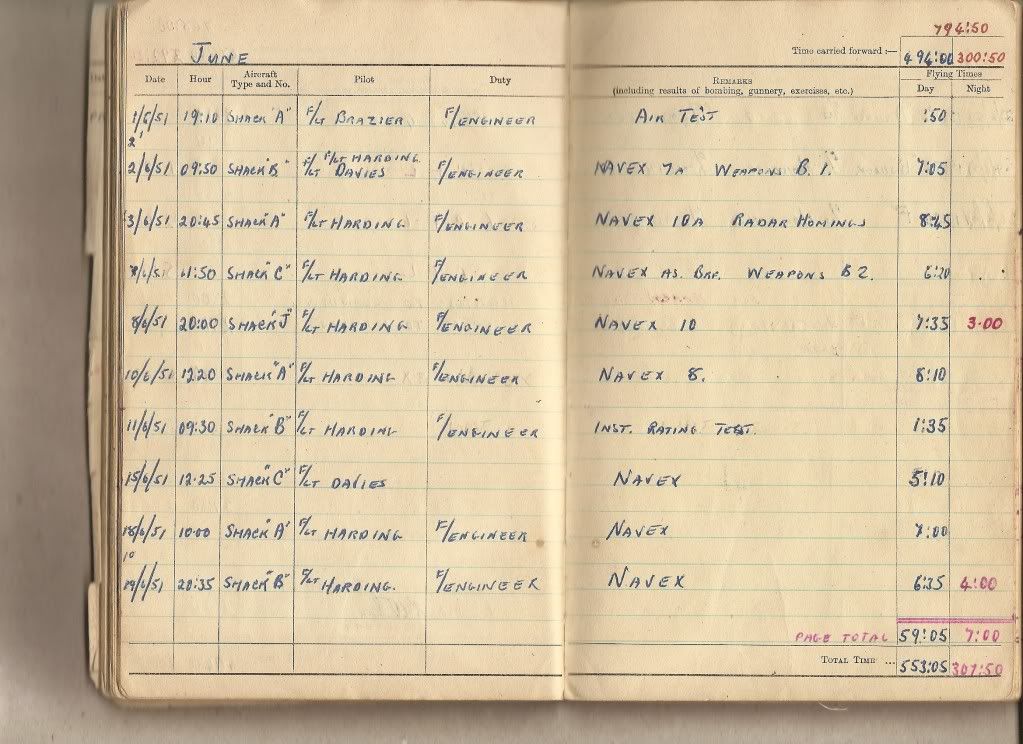 794:50
JUNE
Time carried forward :— 494:00 300:50
Date Hour Aircraft Type and No. Pilot Duty REMARKS (including results of bombing, gunnery, exercises, etc.) Flying Times Day Night
1/6/51 19:10 SHACK "A" F/LT BRAZIER F/ENGINEER AIR TEST :50
2/6/51 09:50 SHACK "B" F/LT HARDING F/LT DAVIES F/ENGINEER NAVEX 7A WEAPONS B.1. 7:05
3/6/51 20:45 SHACK "A" F/LT HARDING F/ENGINEER NAVEX 10A RADAR HOMINGS 8:45
/6/51 11:50 SHACK "C" F/LT HARDING F/ENGINEER NAVEX AS. BRF. WEAPONS B2. 6:20
8/6/51 20:00 SHACK "J" F/LT HARDING F/ENGINEER NAVEX 10 7:35 3.00
10/6/51 12.20 SHACK "A" F/LT HARDING F/ENGINEER NAVEX 8. 8:10
11/6/51 09:30 SHACK "B" F/LT HARDING F/ENGINEER INST. RATING TEST. 1:35
15/6/51 12.25 SHACK "C" F/LT DAVIES NAVEX 5:10
18/6/51 10.00 SHACK "A" F/LT HARDING F/ENGINEER NAVEX 7:00
19/6/51 20:35 SHACK "B" F/LT HARDING. F/ENGINEER NAVEX 6:35 4:00
PAGE TOTAL 59:05 7:00
TOTAL TIME ... 553:05 307:50